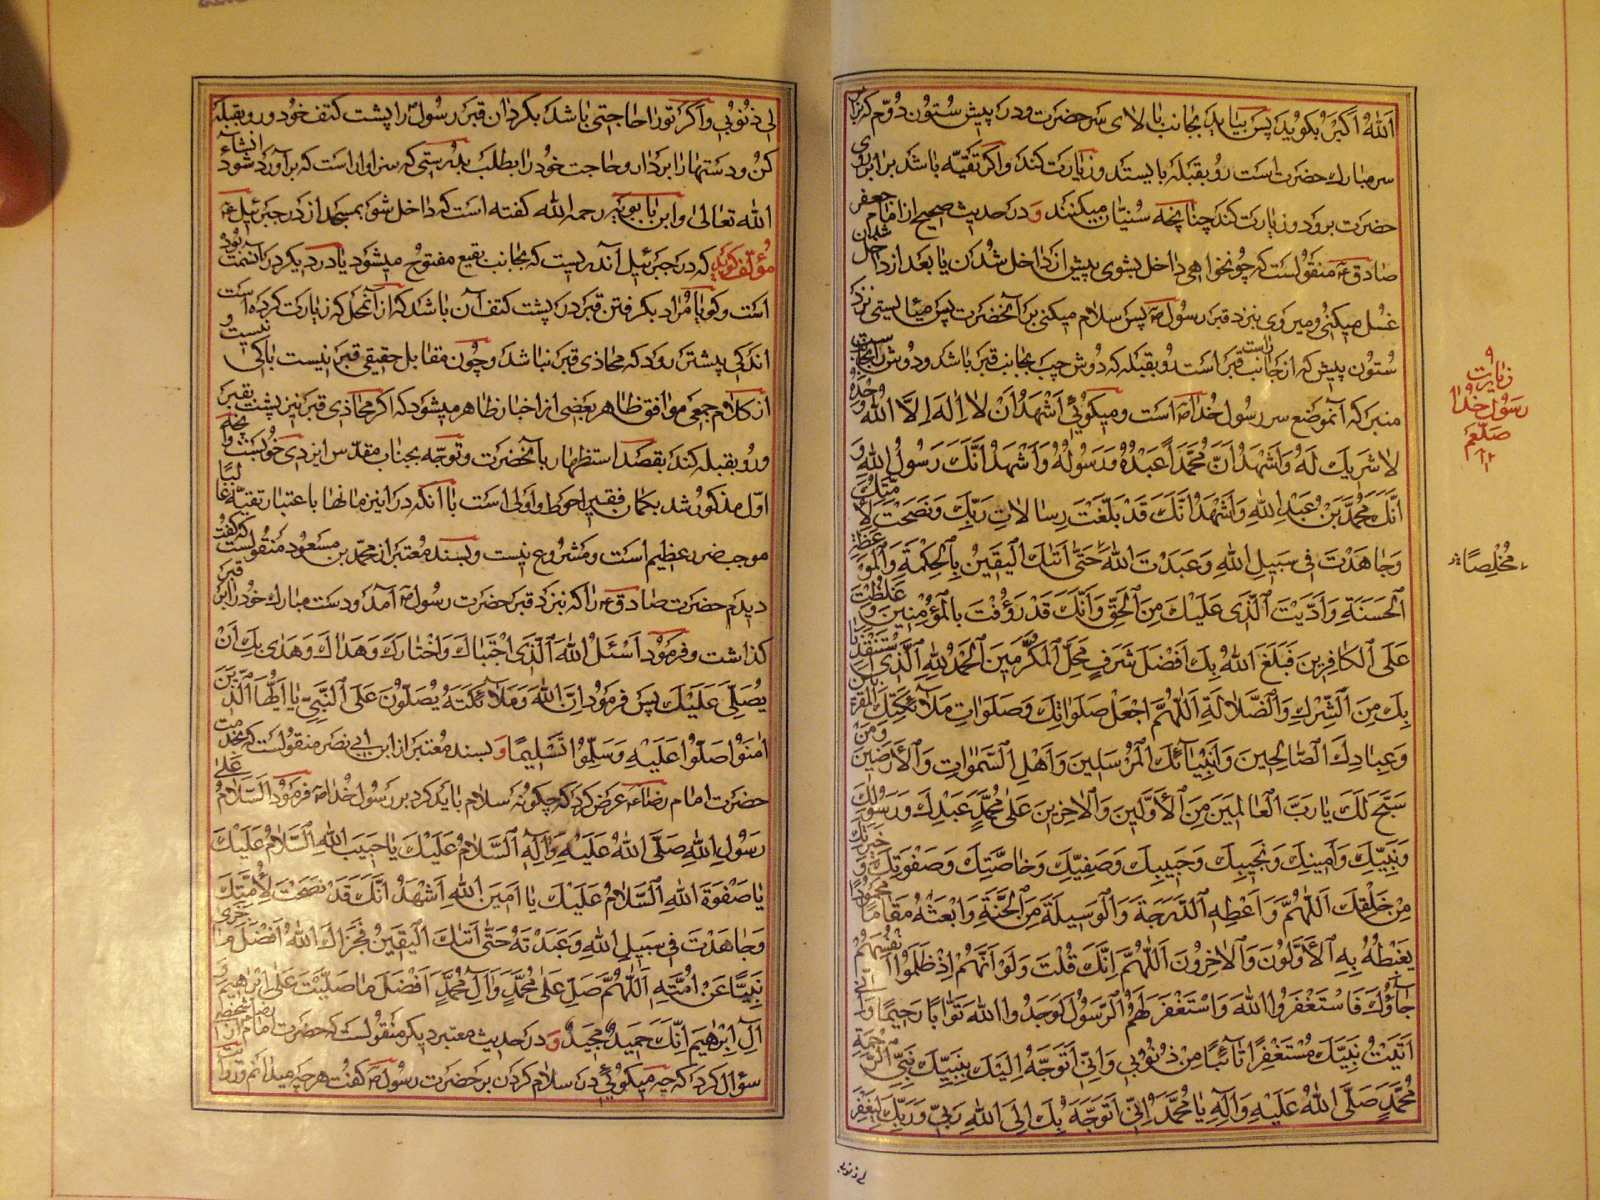 الله اکبر بکوید پس بیاید بجانب بالای سر حضرت و در پیش ستون دوم کرنزد
سر مبارک حضرت است رو بقبله بایستد و زیارت کند و اکر تقیه باشد برابر روی
حضرت برود و زیارت کند چنانچه سنیان میکنند و در حدیث صحیح از امام جعفر
صادق ع منقولست که چون خواهی داخل بشوی پیش از داخل شدن یا بعد از داخل شدن
غسل میکنی و میروی نزد قبر رسول ص پس سلام میکنی بر آنحضرت پس میایستی نزد
ستون پیش که از جانب راست قبر است رو بقبله که دوش چپ بجانب قبر باشد و دوش راست بجانب
منبر که آنموضع سر رسول خدا ص است و میکوئی اَشْهَدُ اَنْ لا اِلهَ اِلَّا اللهُ وَحْدَهُ
لا شَرِیكَ لَهُ وَاَشْهَدُ اَنَّ مُحَمَّداً عَبْدُهُ وَرَسُولُهُ وَاَشْهَدُ اَنَّكَ رَسُولُ اللهِ وَ
اَنَّكَ مُحَمَّدُ بْنُ عَبْدِ اللهِ وَاَشْهَدُ اَنَّكَ قَدْ بَلَّغْتَ رِسالاتِ رَبِّكَ وَنَصَحْتَ لِاُمَّتِكَ
وَجاهَدْتَ فی سَبیلِ اللهِ وَعَبَدْتَ اللهَ حَتّی اَتیكَ الْیَقینُ بِالْحِکْمَةِ وَالْمَوْعِظَةِ
الْحَسَنَةِ وَاَدَّیْتَ الَّذی عَلَیْكَ مِنَ الْحَقِّ وَاَنَّكَ قَدْ رَؤُفْتَ بِالْمُؤْمِنینَ وَغَلُظْتَ
عَلَی الْکافِرینَ فَبَلَغَ اللهُ بِكَ اَفْضَلَ شَرَفِ مَحَلِّ الْمُکَرَّمینَ الْحَمْدُ لِلّهِ الَّذی اسْتَنْقَذَنا
بِكَ مِنَ الشِّرْكِ وَالضَّلالَةِ اَللّهُمَّ اجْعَلْ صَلَواتِكَ وَصَلَواتِ مَلآئِکَتِكَ الْمُقَرَّبینَ
وَعِبادِكَ الصّالِحینَ وَاَنْبِیآئِكَ الْمُرْسَلینَ وَاَهْلِ السَّمواتِ وَالْاَرَضینَ وَمَنْ
سَبَّحَ لَكَ یا رَبَّ الْعالَمینَ مِنَ الْاَوَّلینَ وَالْاخِرینَ عَلی مُحَمَّدٍ عَبْدِكَ وَرَسُولِكَ
وَنَبِیِّكَ وَاَمینِكَ وَنَجیبِكَ وَحَبیبِكَ وَصَفِیِّكَ وَخاصَّتِكَ وَصَفْوَتِكَ وَخِیَرَتِكَ
مِنْ خَلْقِكَ اَللّهُمَّ وَاَعْطِهِ الدَّرَجَةَ وَالْوَسیلَةَ مِنَ الْجَنَّةِ وَابْعَثْهُ مَقاماً مَحْمُوداً
یَغْبِطُهُ بِهِ الْاَوَّلُونَ وَالْاخِرُونَ اَللّهُمَّ اِنَّكَ قُلْتَ وَلَوْ اَنَّهُمْ اِذْ ظَلَمُوا اَنْفُسَهُمْ
جآؤُكَ فَاسْتَغْفَرُوا اللهَ وَاسْتَغْفَرَ لَهُمُ الرَّسُولُ لَوَجَدُوا اللهَ تَوّاباً رَحیماً وَاِنّی
اَتَیْتُ نَبِیَّكَ مُسْتَغْفِراً تآئِباً مِنْ ذُنُوبی وَاِنّی اَتَوَجَّهُ اِلَیْكَ بِنَبِیِّكَ نَبِیِّ الرَّحْمَةِ
مُحَمَّدٍ صَلَّی اللهُ عَلَیْهِ وَآلِهِ یا مُحَمَّدُ اِنّی اَتَوَجَّهُ بِكَ اِلَی اللهِ رَبّی وَرَبِّكَ لِیَغْفِرَ
زیارت
رسول خدا
صلعم
مُخْلِصاً
لی ذنوبی
لی ذُنُوبی و اکر تو را حاجتی باشد بکردان قبر رسول ص را پشت کتف خود و رو بقبله
کن و دستها را بردار و حاجت خود را بطلب بدرستی که سزاوار است که برآورده شود انشاء
الله تعالی و ابن بابویه رحمه الله کفته است که داخل شو بمسجد از در جبرئیل ع
مؤلف کوید که در جبرئیل آندریست که بجانب بقیع مفتوح میشود یا در دیکر در آنسمت بوده
است و کویا مراد بکرفتن قبر در پشت کتف آن باشد که از آنمحل که زیارت کرده است
اندکی پیشتر رود که محاذی قبر نباشد و چون مقابل حقیقی قبر نیست باکی نیست و
از کلام جمعی موافق ظاهر بعضی از اخبار ظاهر میشود که اکر محاذی قبر نیز پشت بقبر
و رو بقبله کند بقصد استظهار بآنحضرت و توجه بجناب مقدس ایزدی خوبست و آنچه
اول مذکور شد بکمان فقیر احوط و اولی است با آنکه در این زمانها باعتبار تقیه غالباً
موجب ضرر عظیم است و مشروع نیست و بسند معتبر از محمد بن مسعود منقولست که کفت
دیدم حضرت صادق ع را که نزد قبر حضرت رسول ص آمد و دست مبارك خود را بر قبر
کذاشت و فرمود اَسْئَلُ اللهَ الَّذِی اجْتَباكَ وَاخْتارَكَ وَهَداكَ وَهَدی بِكَ اَنْ
یُصَلِّیَ عَلَیْكَ پس فرمود اِنَّ اللهَ وَمَلآئِکَتَهُ یُصَلُّونَ عَلَی النَّبِیِّ یا اَیُّهَا الَّذینَ
امَنُوا صَلُّوا عَلَیْهِ وَسَلِّمُوا تَسْلیماً و بسند معتبر از ابن ابی نصر منقولست که بخدمت
حضرت امام رضا ع عرض کرد که چکونه سلام باید کرد بر رسول خدا ص فرمود اَلسَّلامُ عَلی
رَسُولِ اللهِ صَلَّی اللهُ عَلَیْهِ وَآلِهِ اَلسَّلامُ عَلَیْكَ یا حَبیبَ اللهِ اَلسَّلامُ عَلَیْكَ
یا صَفْوَةَ اللهِ اَلسَّلامُ عَلَیْكَ یا اَمینَ اللهِ اَشْهَدُ اَنَّكَ قَدْ نَصَحْتَ لِاُمَّتِكَ
وَجاهَدْتَ فی سَبیلِ اللهِ وَعَبَدْتَهُ حَتّی اَتیكَ الْیَقینُ فَجَزاكَ اللهُ اَفْضَلَ ما جَزی
نَبِیّاً عَنْ اُمَّتِهِ اَللّهُمَّ صَلِّ عَلی مُحَمَّدٍ وَآلِ مُحَمَّدٍ اَفْضَلَ ما صَلَّیْتَ عَلی اِبْرهیمَ وَ
آلِ اِبْرهیمَ اِنَّكَ حَمیدٌ مَجیدٌ و در حدیث معتبر دیکر منقولست که حضرت امام رضا ع از شخصی
سؤال کرد که چه میکوئی در سلام کردن بر حضرت رسول ص کفت هر چه میدانم